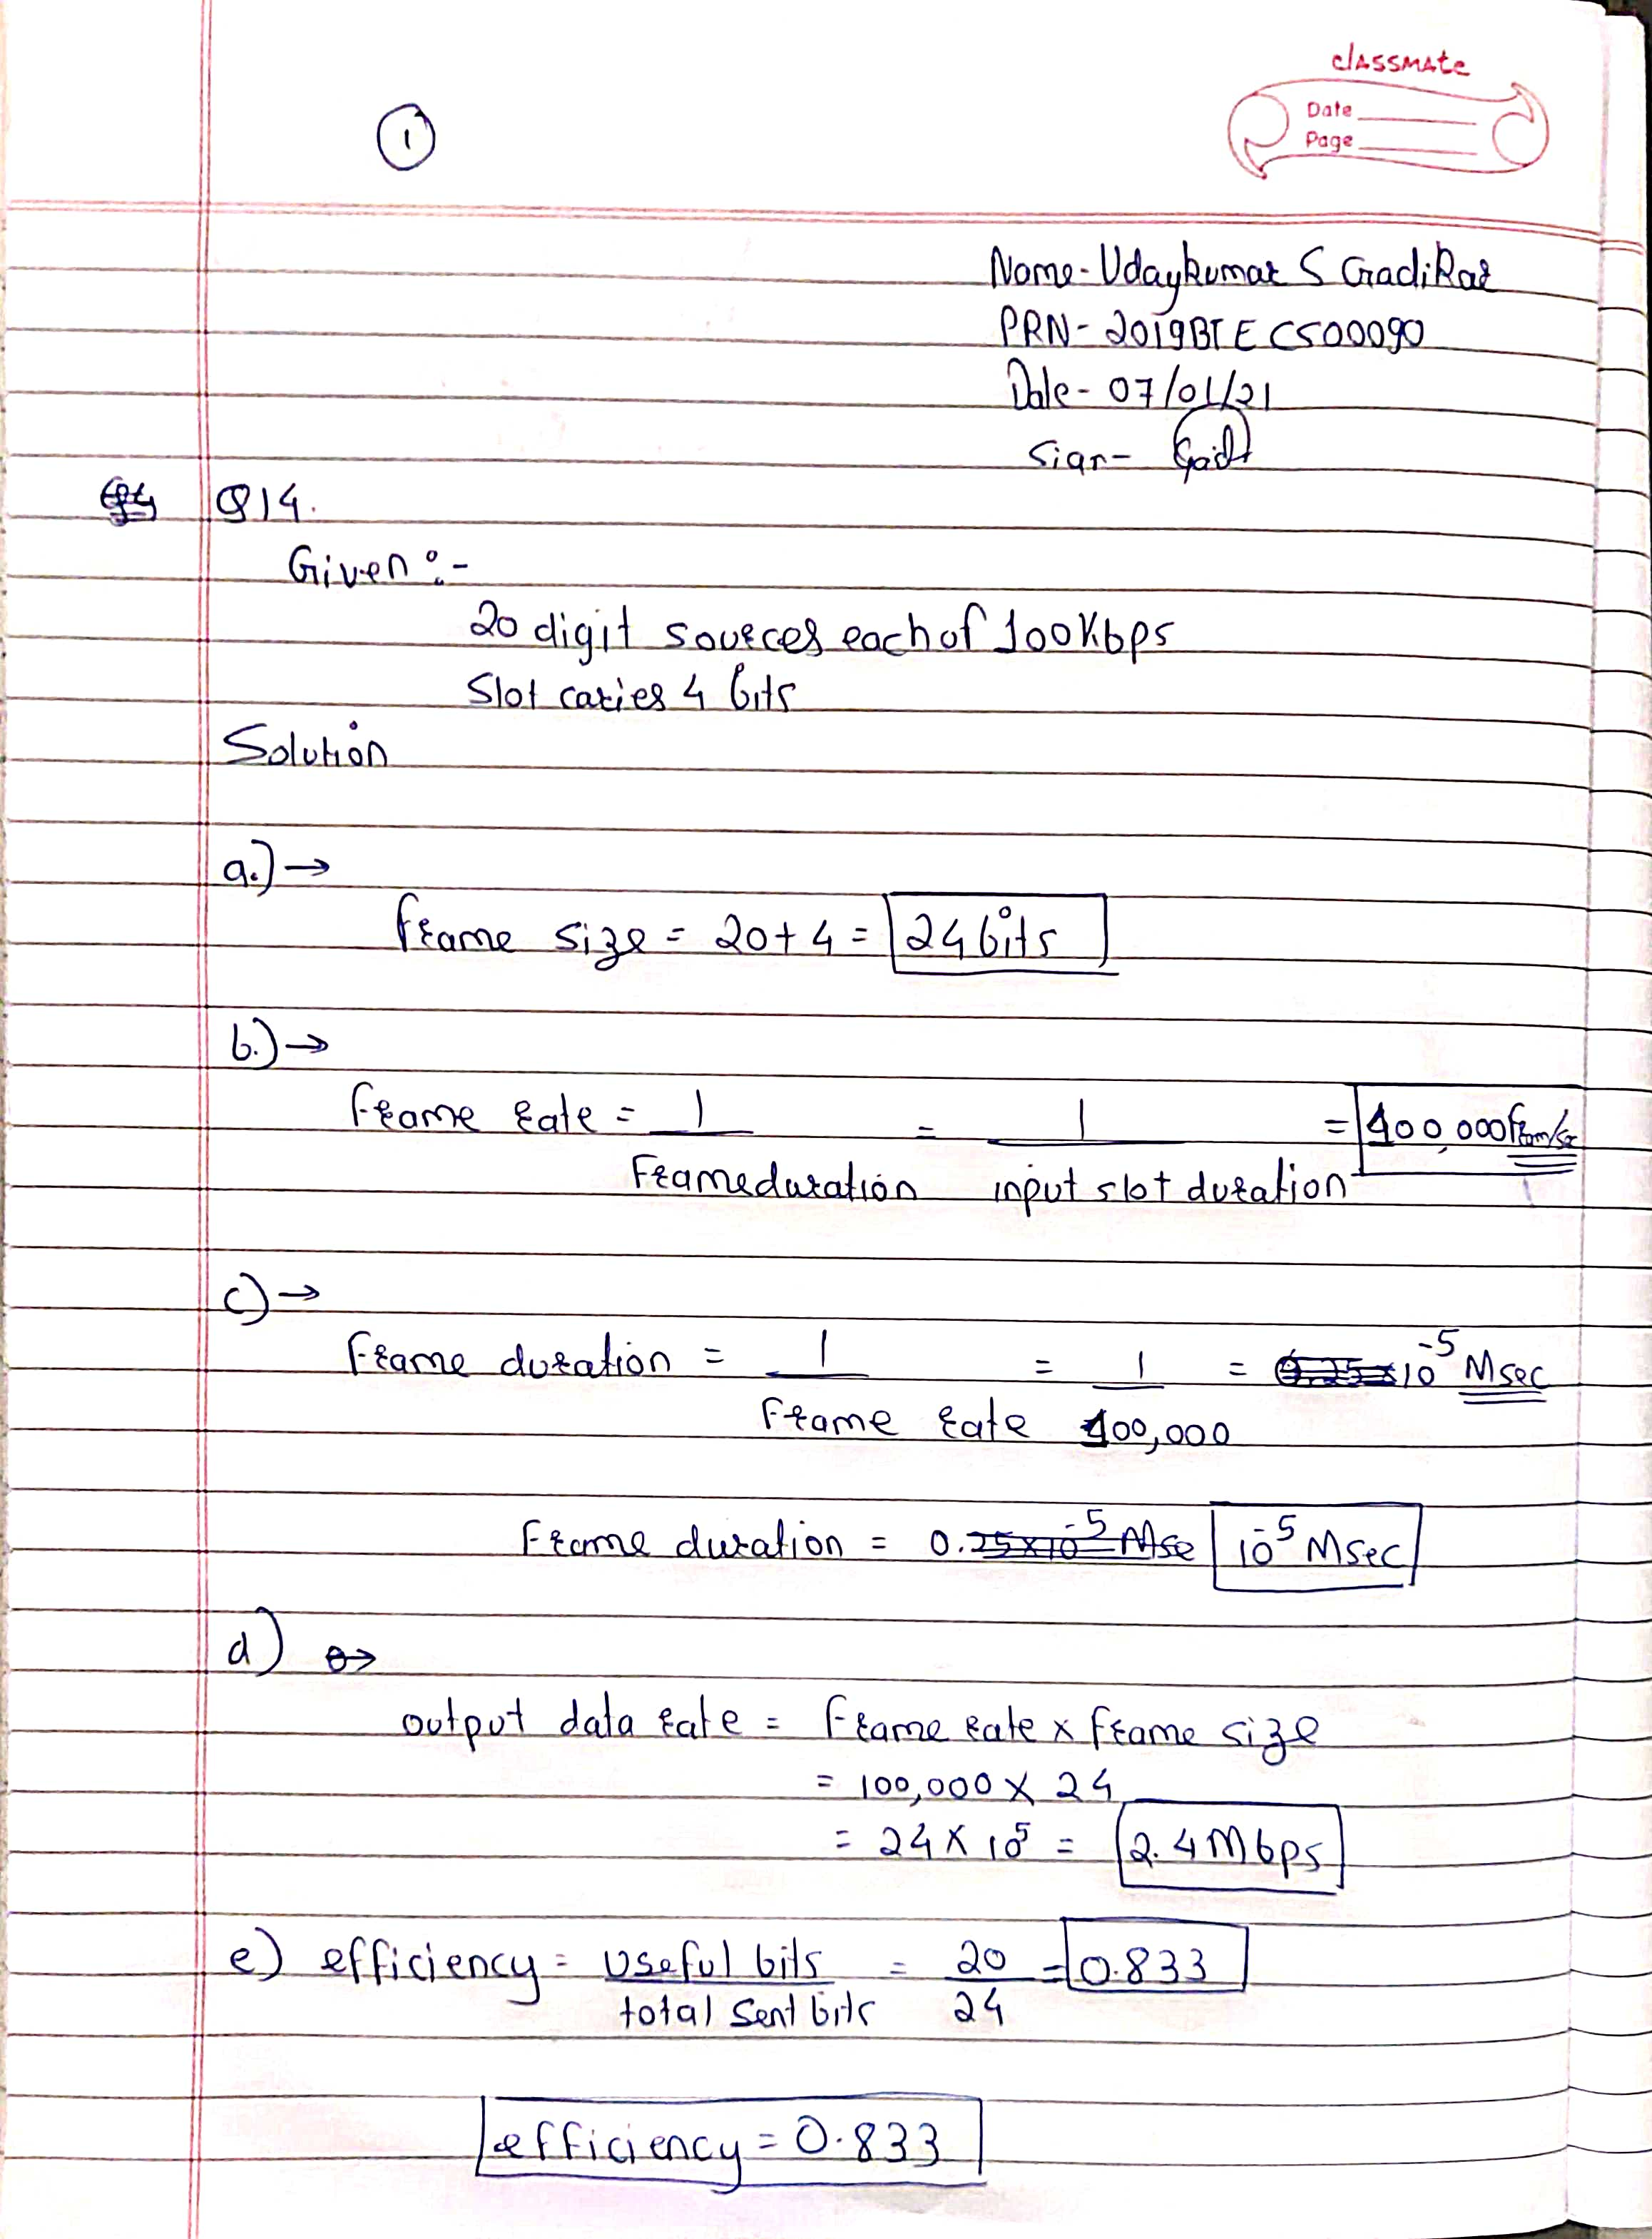 classmate
Date
Page
1
Name- Udaykumar S Gadikar
PRN- 2019BTECS00090
Date- 07/01/21
Sign-
Q14.
Given :-
20 digit sources each of 100Kbps
Slot caries 4 bits
Solution
a.) →
frame size = 20+4 = 24 bits
b.) →
Frame rate = 1 / Frame duration = 1 / input slot duration = 100,000 fram/se
c) →
Frame duration = 1 / Frame rate = 1 / 100,000 = 10^-5 Msec
Frame duration = 10^-5 Msec
d) →
output data rate = Frame rate x frame size
= 100,000 X 24
= 24 X 10^5 = 2.4 Mbps
e) efficiency = useful bits / total sent bits = 20 / 24 = 0.833
efficiency = 0.833